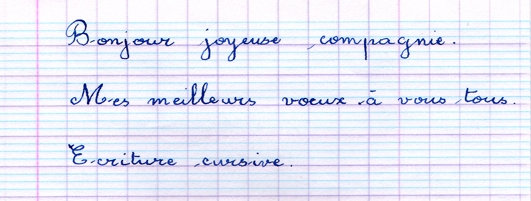 Bonjour joyeuse compagnie.
Mes meilleurs voeux à vous tous.
Ecriture cursive.